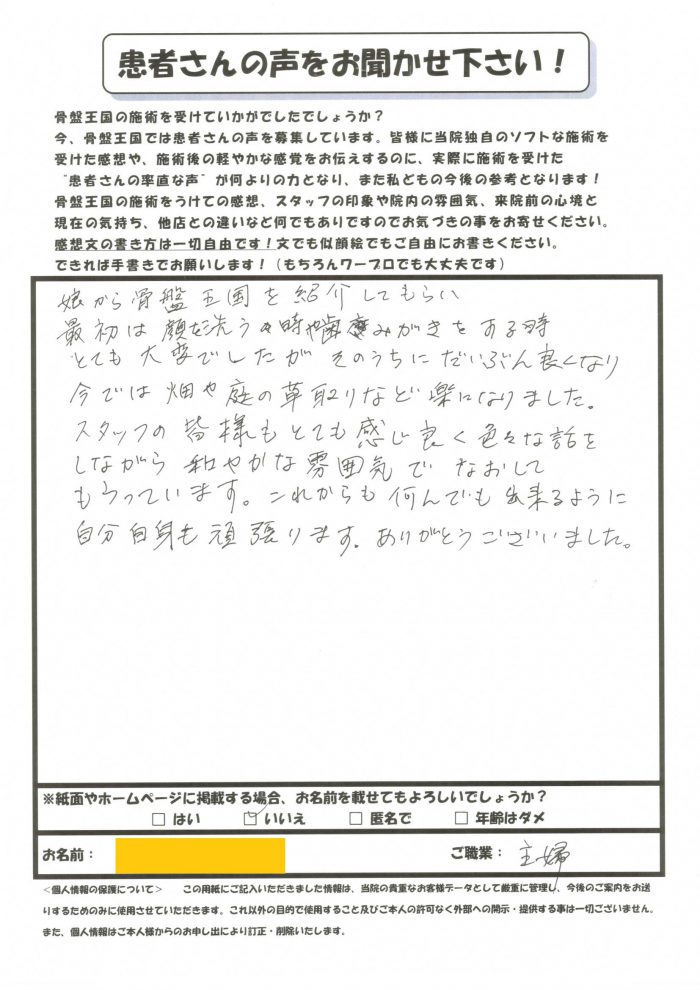 患者さんの声をお聞かせ下さい！
骨盤王国の施術を受けていかがでしたでしょうか？
今、骨盤王国では患者さんの声を募集しています。皆様に当院独自のソフトな施術を
受けた感想や、施術後の軽やかな感覚をお伝えするのに、実際に施術を受けた
"患者さんの率直な声"が何よりの力となり、また私どもの今後の参考となります！
骨盤王国の施術をうけての感想、スタッフの印象や院内の雰囲気、来院前の心境と
現在の気持ち、他店との違いなど何でもありですのでお気づきの事をお寄せください。
感想文の書き方は一切自由です！文でも似顔絵でもご自由にお書きください。
できれば手書きでお願いします！（もちろんワープロでも大丈夫です）
娘から骨盤王国を紹介してもらい
最初は顔を洗う時や歯みがきをする時
とても大変でしたがそのうちにだいぶん良くなり
今では畑や庭の草取りなど楽になりました。
スタッフの皆様もとても感じ良く色々な話を
しながら和やかな雰囲気でなおして
もらっています。これからも何んでも出来るように
自分自身も頑張ります。ありがとうございました。
※紙面やホームページに掲載する場合、お名前を載せてもよろしいでしょうか？
□ はい ☑ いいえ □ 匿名で □ 年齢はダメ
お名前： ご職業： 主婦
＜個人情報の保護について＞ この用紙にご記入いただきました情報は、当院の貴重なお客様データとして厳重に管理し、今後のご案内をお送
りするためのみに使用させていただきます。これ以外の目的で使用すること及びご本人の許可なく外部への開示・提供する事は一切ございません。
また、個人情報はご本人様からのお申し出により訂正・削除いたします。